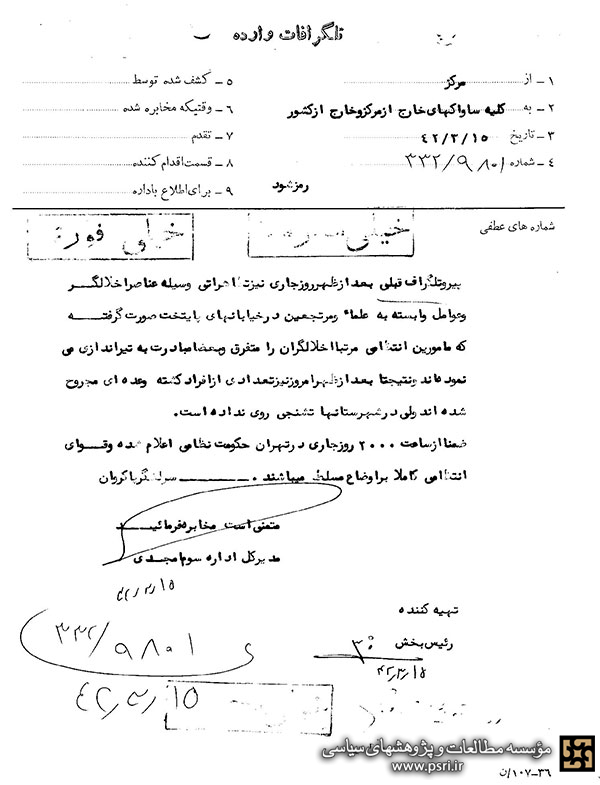 تلگرافات وارده
۱ــ از مرکز
۵ ــ کشف شده توسط
۲ــ به کلیه ساواکهای خارج از مرکز و خارج از کشور
۶ ــ وقتیکه مخابره شده
۳ ــ تاریخ ۴۲/۳/۱۵
۷ ــ تقدم
۴ ــ شماره ۳۳۲/۹۸۰۱
۸ ــ قسمت اقدام کننده
رمز شود
۹ ــ برای اطلاع باداره
شماره های عطفی
خیلی خیلی فوری
پیرو تلگراف قبلی بعد از ظهر روز جاری نیز تظاهراتی وسیله عناصر اخلالگر
و عوامل وابسته به علماء و مرتجعین در خیابانهای پایتخت صورت گرفته
که مامورین انتظامی مرتبا اخلالگران را متفرق و بعضا مبادرت به تیراندازی می
نموده اند و نتیجتا بعد از ظهر امروز نیز تعدادی از افراد کشته و عده ای مجروح
شده اند ولی در شهرستانها تشنجی روی نداده است.
ضمنا از ساعت ۲۰۰۰ روز جاری در تهران حکومت نظامی اعلام شده و قوای
انتظامی کاملا بر اوضاع مسلط میباشند. سرلشگر پاکروان
متمنی است مخابره فرمائید
مدیر کل اداره سوم امجدی
۴۲/۳/۱۵
تهیه کننده
رئیس بخش
۴۲/۳/۱۵
۳۳۲/۹۸۰۱
۴۲/۳/۱۵
مؤسسه مطالعات و پژوهشهای سیاسی
www.psri.ir
۳۶ــ۱۰۷/ن